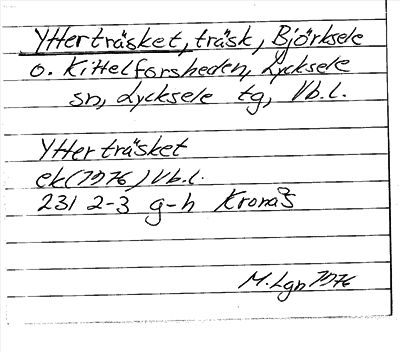 Ytterträsket, träsk, Björksele
o. Kittelforsheden, Lycksele
sn, Lycksele tg, Vb.l.
Ytterträsket
ek(1976) Vb.l.
231 2-3 g-h Kronas
M. Lgn 1976